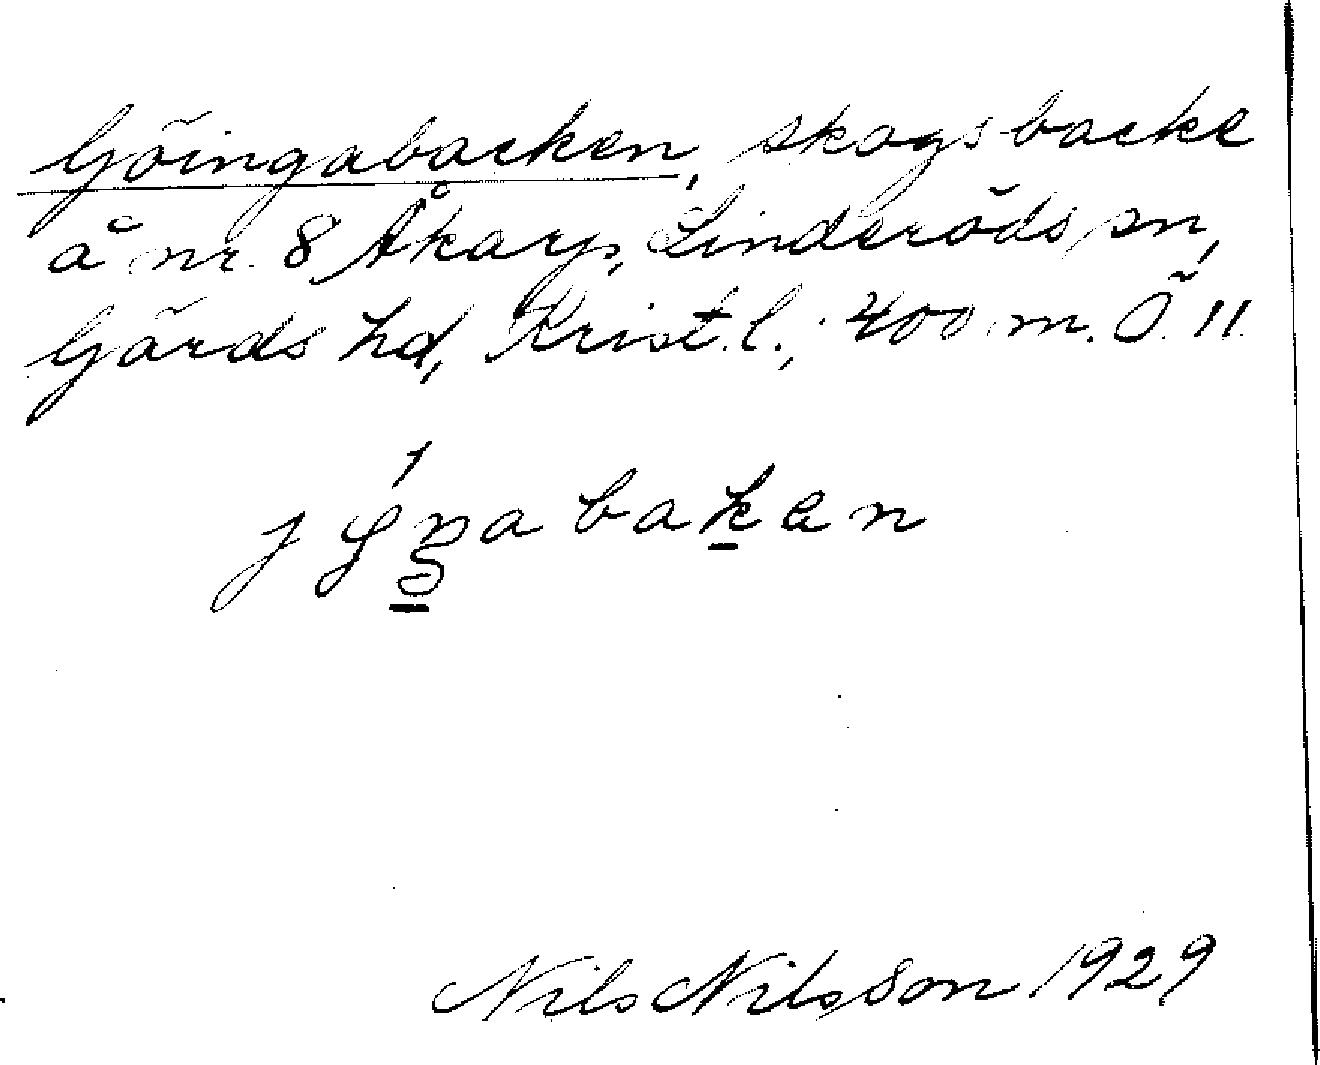 Göingabacken, skogsbacke
å nr. 8 Åkarp, Linderöds sn,
Gärds hd, Krist. l., 400 m. Ö. 11.
Nils Nilsson 1929